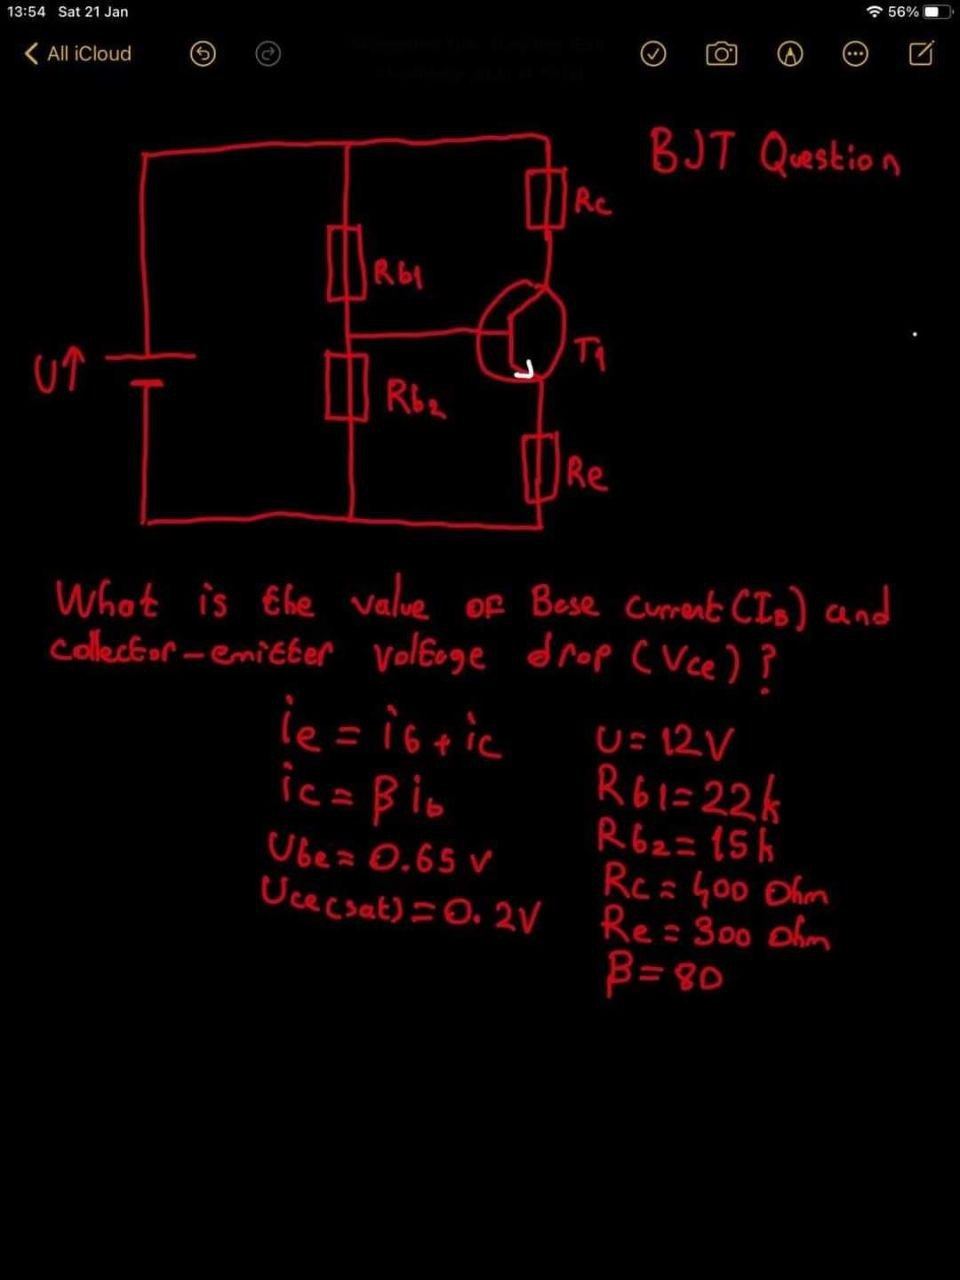 13:54 Sat 21 Jan
56%
All iCloud
BJT Question
Rc
Rb1
T1
U↑
Rb2
Re
What is the value of Base current (IB) and
collector-emitter voltage drop (Vce)?
ie = ib + ic
ic = β ib
Ube = 0.65 v
Uce(sat) = 0.2V
U = 12V
Rb1 = 22k
Rb2 = 15k
Rc = 400 Ohm
Re = 300 Ohm
β = 80